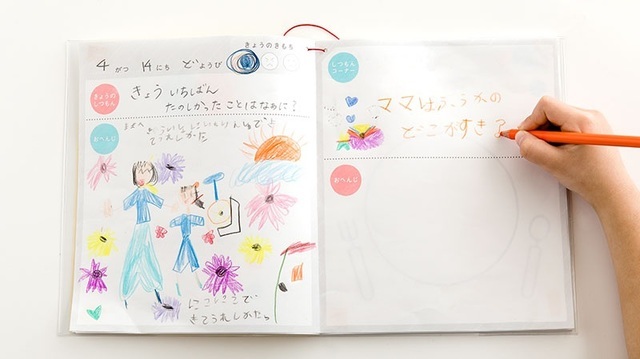 きょうのきもち
4 がつ 14 にち どようび
きょうの
しつもん
きょう いちばん
たのしかった ことはなあに?
おへんじ
てうれしかた
にこにこで
きてうれしかた
しつもん
コーナー
ママはふうかの
どこがすき?
おへんじ